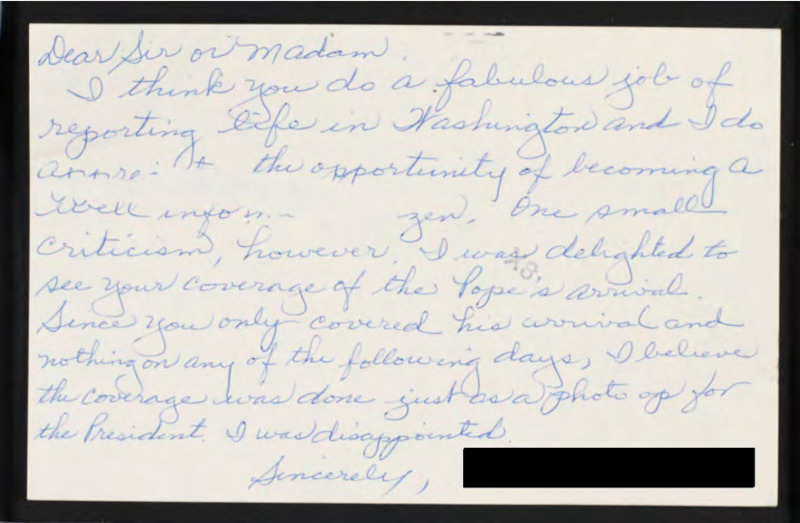 Dear Sir or Madam.
I think you do a fabulous job of
reporting life in Washington and I do
the opportunity of becoming a
well
criticism, however. I was delighted to
see your coverage of the Pope's arrival.
Since you only covered his arrival and
nothing on any of the following days, I believe
the coverage was done just as a photo op for
the President. I was disappointed
Sincerely,